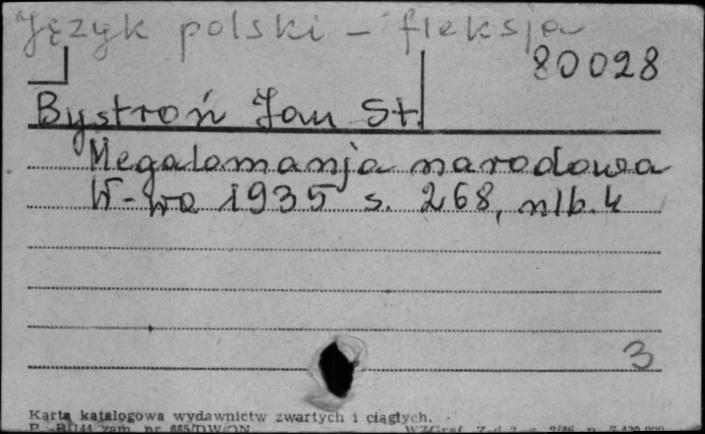 Język polski - fleksja
80028
Bystroń Jan St.
Megalomanja narodowa
W-wa 1935 s. 268, nlb. 4
3
Karta katalogowa wydawnictw zwartych i ciągłych.
zam. nr